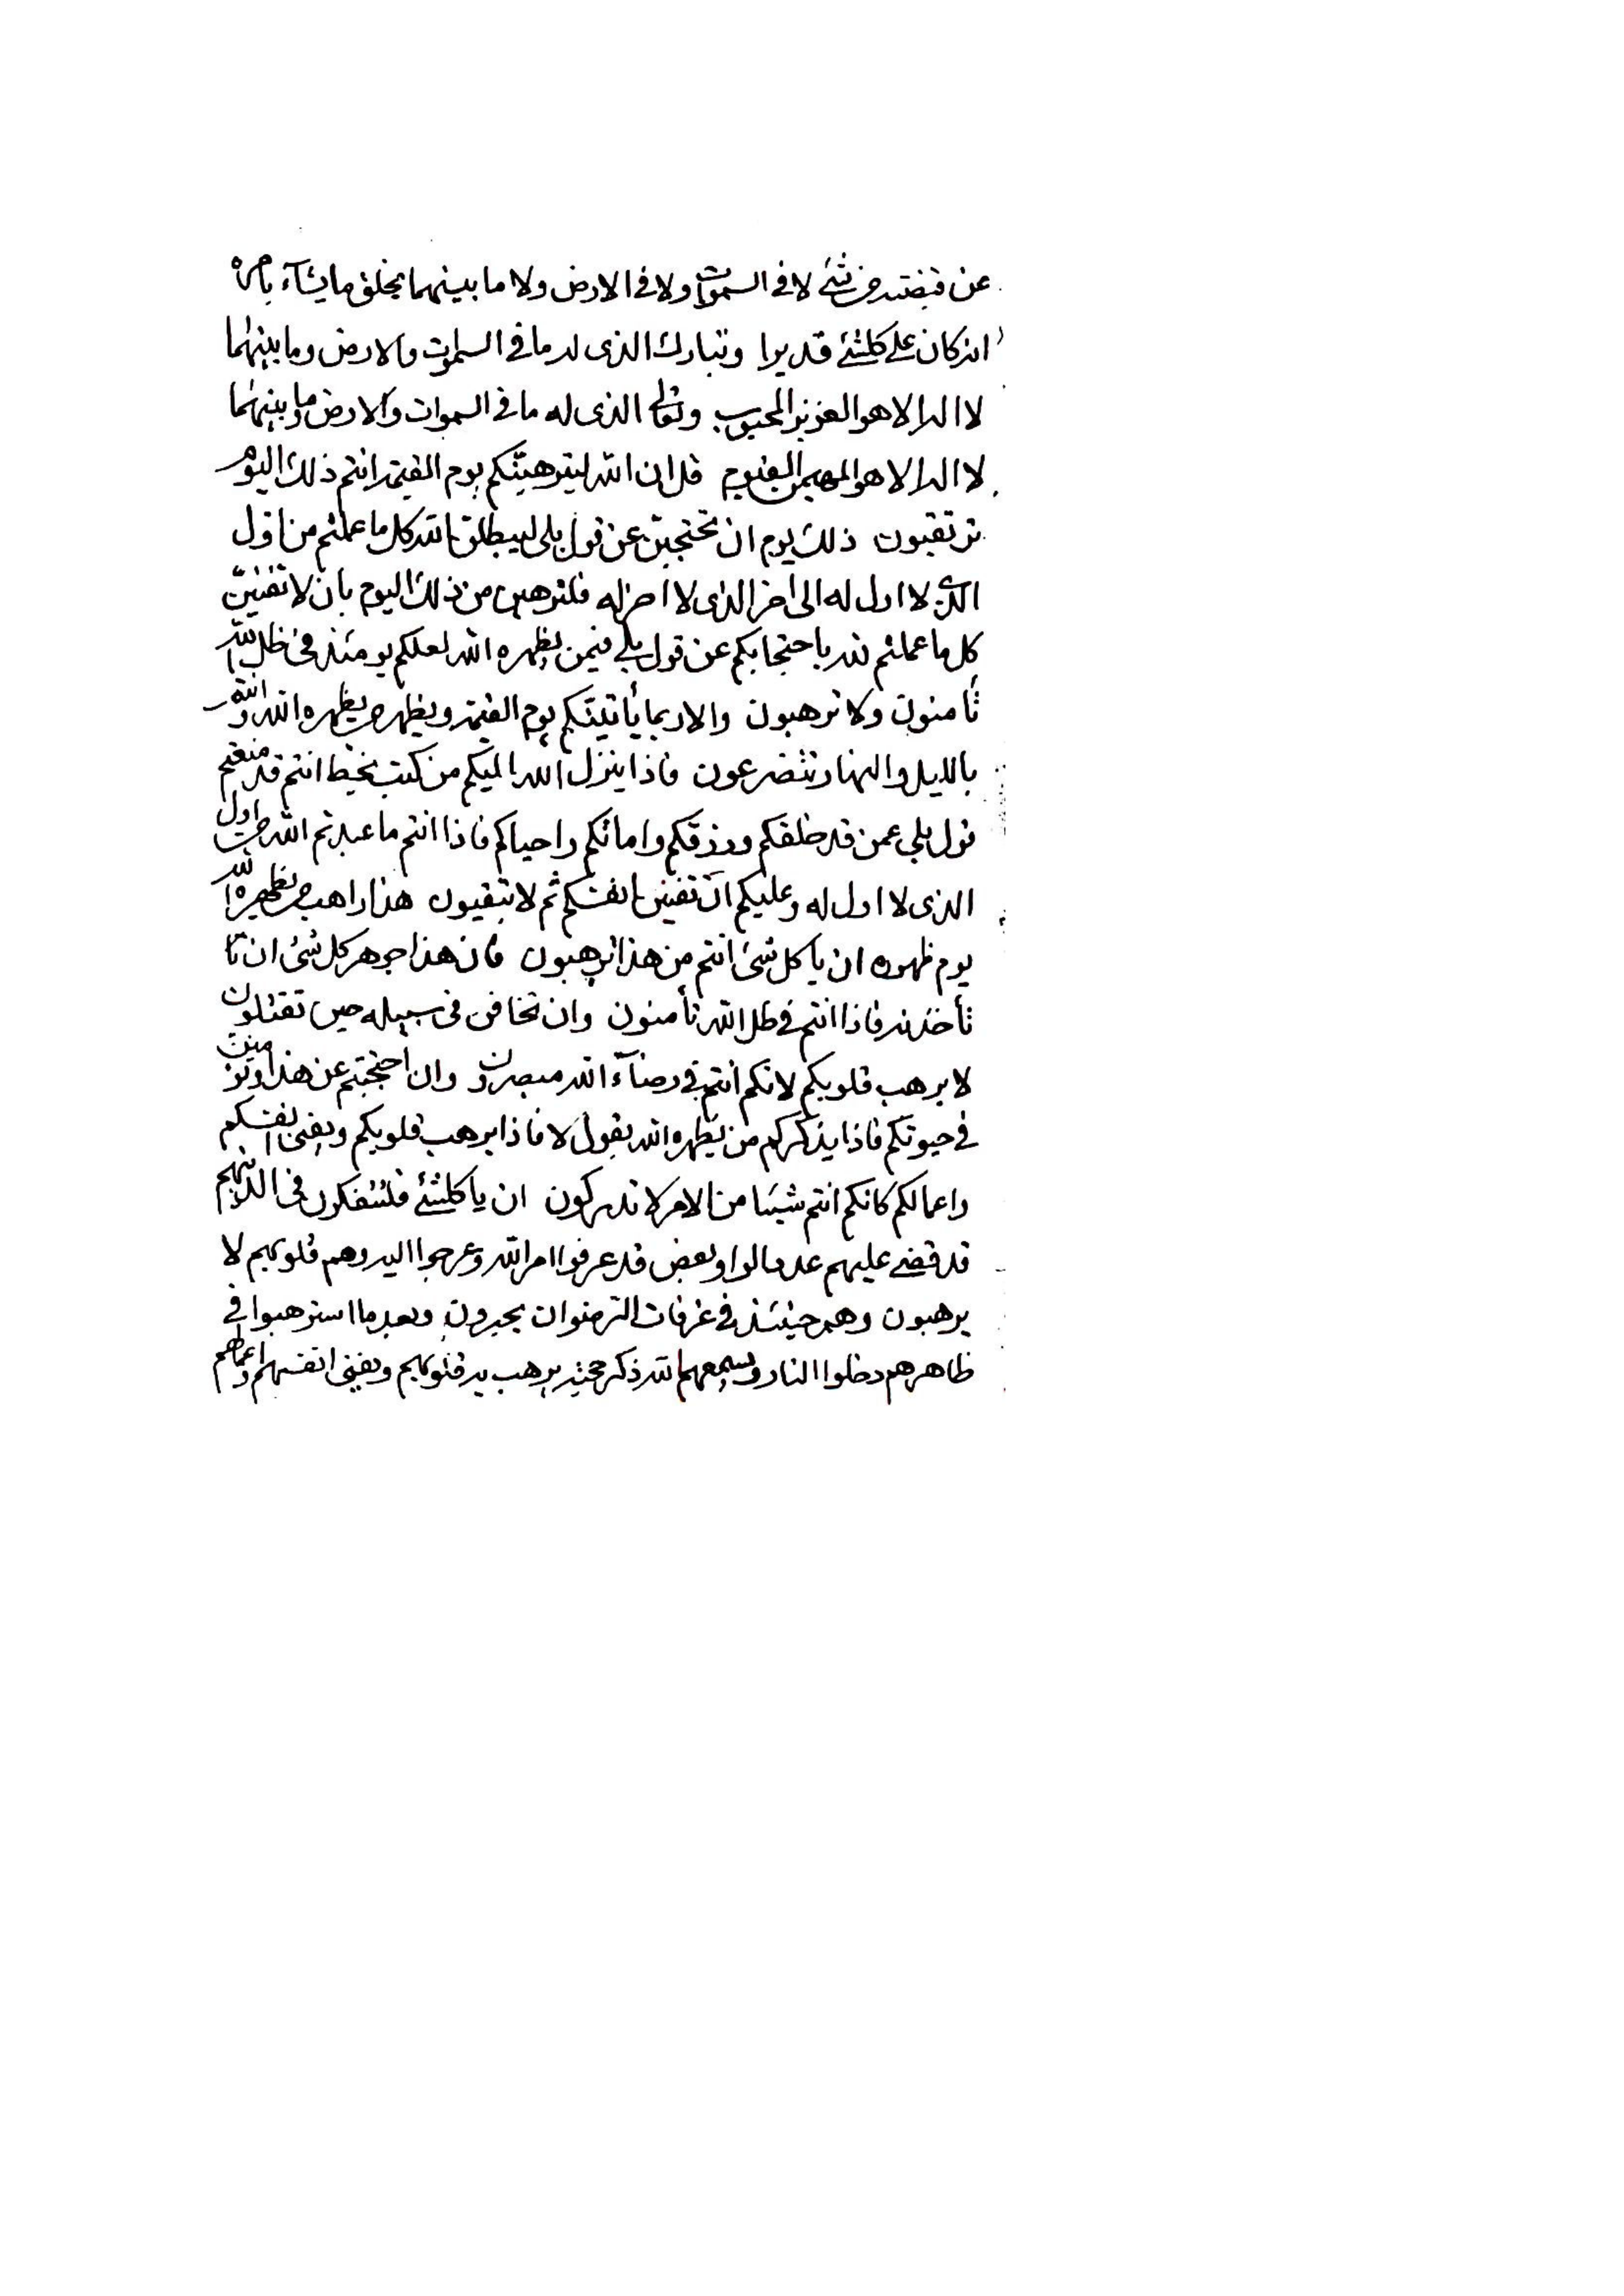 عن قبضته من شئ لا فى السموات ولا فى الارض ولا ما بينهما يخلق ما يشآء بامره
انه كان على كلشئ قديرا وتبارك الذى له ما فى السموات والارض وما بينهما
لا اله الا هو العزيز المحبوب وتعالى الذى له ما فى السموات والارض وما بينهما
لا اله الا هو المهيمن القيوم قل ان الله ليترهبنكم يوم القيمة انتم ذلك اليوم
ترتقبون ذلك يوم ان تحتجبن عن قول بلى ليبطلن الله كل ما عملتم من اول
الذى لا اول له الى اخر الذى لا اخر له فلترهبن من ذلك اليوم بان لا تفنين
كل ما عملتم لله باحتجابكم عن قول بلى فيمن يظهره الله لعلكم يومئذ فى ظل الله
تأمنون ولا ترهبون والا ربما يأتينكم يوم القيمة ويظهر من يظهره الله وانتم
بالليل والنهار تتضرعون فاذا ينزل الله اليكم من كتب بخط انتم قد منعتم
قول بلى عمن قد خلقكم ورزقكم واماتكم واحياكم فاذا انتم ما عبدتم الله من اول
الذى لا اول له وعليكم ان تفنين انفسكم ثم لا تبقيون هذا راهب من يظهره الله
يوم ظهوره ان يا كل شئ انتم من هذا ترهبون فان هذا جوهر كل شئ ان
تأخذنه فاذا انتم فى ظل الله تأمنون وان تخافن فى سبيله حين تقتلون
لا يرهب قلوبكم لانكم انتم فى رضآء الله مبصرون وان احتجبتم عن هذا
فى حيوتكم فاذا يذكركم من يظهره الله بقول لا فاذا يرهب قلوبكم ويفنى انفسكم
واعمالكم كانكم انتم شيئا من الامر لا تدركون ان يا كلشئ فلتتفكرون فى الذينهم
قد قضى عليهم وبعض قد عرفوا امر الله وعرجوا اليه وهم قلوبهم لا
يرهبون وهم حينئذ فى غرفات الرضوان يحبرون وبعد ما استرهبوا فى
ظاهرهم دخلوا النار ويسمعهم الله ذكر يرهب به قلوبهم ويفنى انفسهم واعمالهم